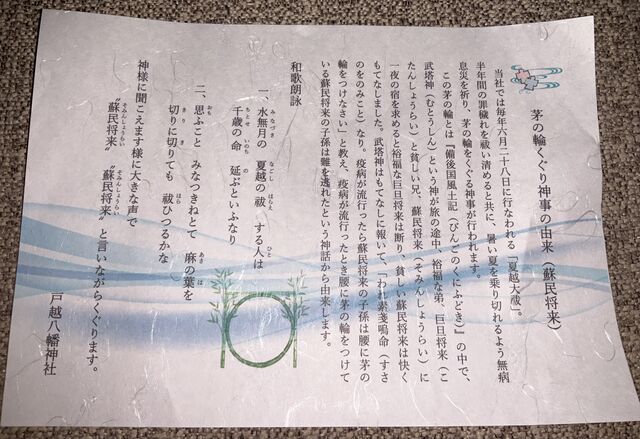 茅の輪くぐり神事の由来（蘇民将来）
当社では毎年六月二十八日に行なわれる「夏越大祓」。
半年間の罪穢れを祓い清めると共に、暑い夏を乗り切れるよう無病
息災を祈り、茅の輪をくぐる神事が行われます。
この茅の輪とは『備後国風土記（びんごのくにふどき）』の中で、
武塔神（むとうしん）という神が旅の途中、裕福な弟、巨旦将来（こ
たんしょうらい）と貧しい兄、蘇民将来（そみんしょうらい）に
一夜の宿を求めると裕福な巨旦将来は断り、貧しい蘇民将来は快く
もてなしました。武塔神はもてなしに報いて、「われ素戔嗚命（すさ
のをのみこと）なり。疫病が流行ったら蘇民将来の子孫は腰に茅の
輪をつけなさい」と教え、疫病が流行ったとき腰に茅の輪をつけて
いる蘇民将来の子孫は難を逃れたという神話から由来します。
和歌朗詠
一、水無月の　夏越の祓　する人は
みなづき　なごし　はらえ　ひと
千歳の命　延ぶといふなり
ちとせ　いのち　の
二、思ふこと　みなつきねとて　麻の葉を
おも　あさ　は
切りに切りても　祓ひつるかな
きり　き　はら
神様に聞こえます様に大きな声で
〝蘇民将来〟　〝蘇民将来〟と言いながらくぐります。
そみんしょうらい　そみんしょうらい
戸越八幡神社